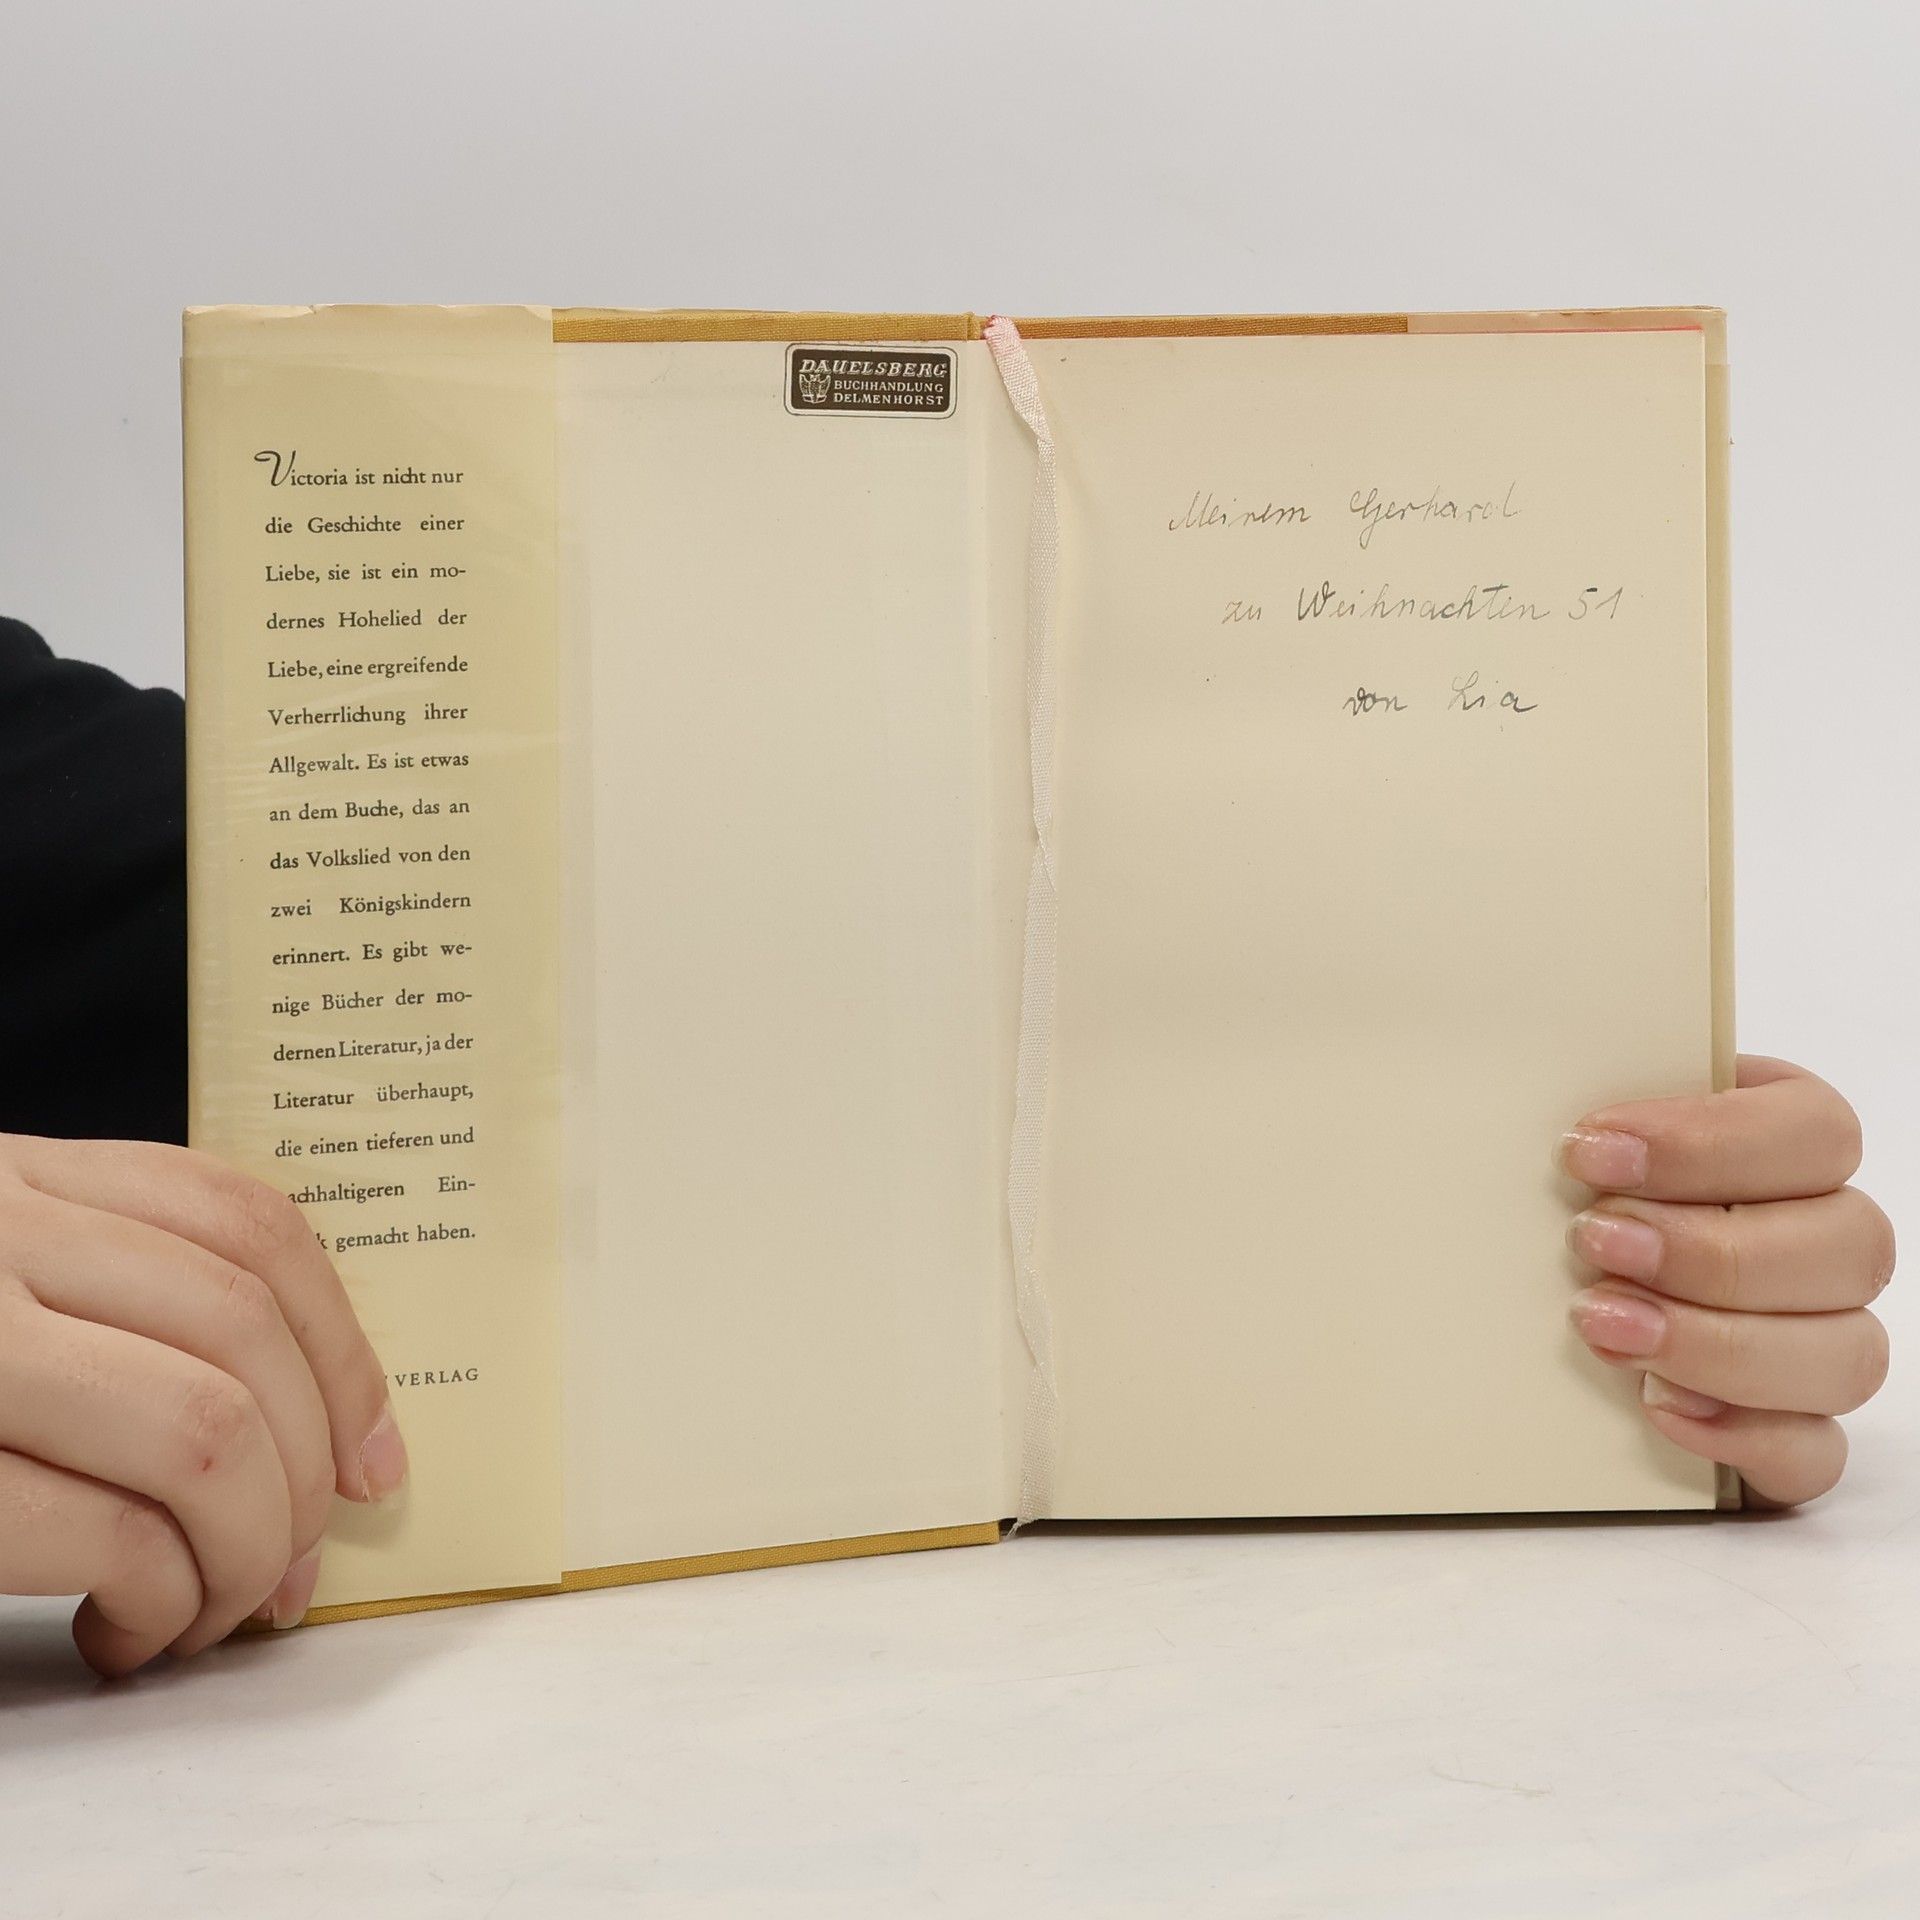 Victoria ist nicht nur
die Geschichte einer
Liebe, sie ist ein mo-
dernes Hohelied der
Liebe, eine ergreifende
Verherrlichung ihrer
Allgewalt. Es ist etwas
an dem Buche, das an
das Volkslied von den
zwei Königskindern
erinnert. Es gibt we-
nige Bücher der mo-
dernen Literatur, ja der
Literatur überhaupt,
die einen tieferen und
achhaltigeren Ein-
k gemacht haben.
VERLAG
DAUELSBERG
BUCHHANDLUNG
DELMENHORST
Meinem Gerhard
zu Weihnachten 51
von Lia